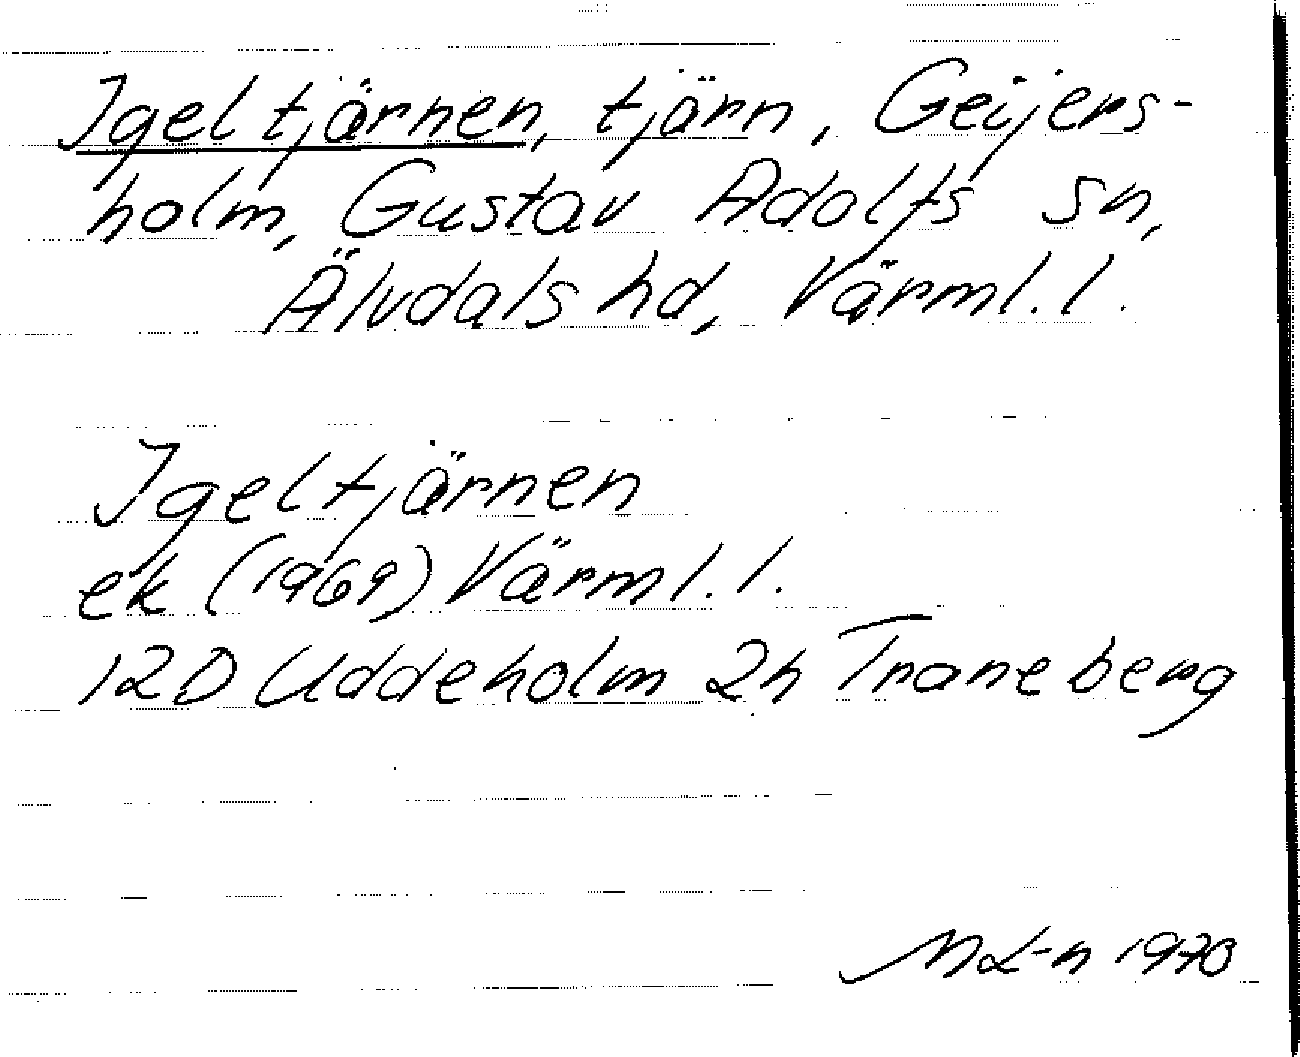 Igeltjärnen, tjärn, Geijers-
holm, Gustav Adolfs sn,
Älvdals hd, Värml. l.
Igeltjärnen
ek (1969) Värml. l.
12D Uddeholm 2h Traneberg
ML-n 1970